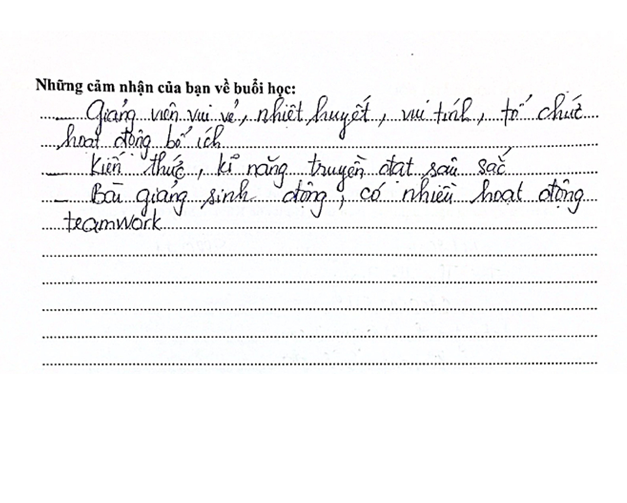 Những cảm nhận của bạn về buổi học:
_ Giảng viên vui vẻ, nhiệt huyết, vui tính, tổ chức
hoạt động bổ ích
_ Kiến thức, kĩ năng truyền đạt sâu sắc
_ Bài giảng sinh động, có nhiều hoạt động
teamwork